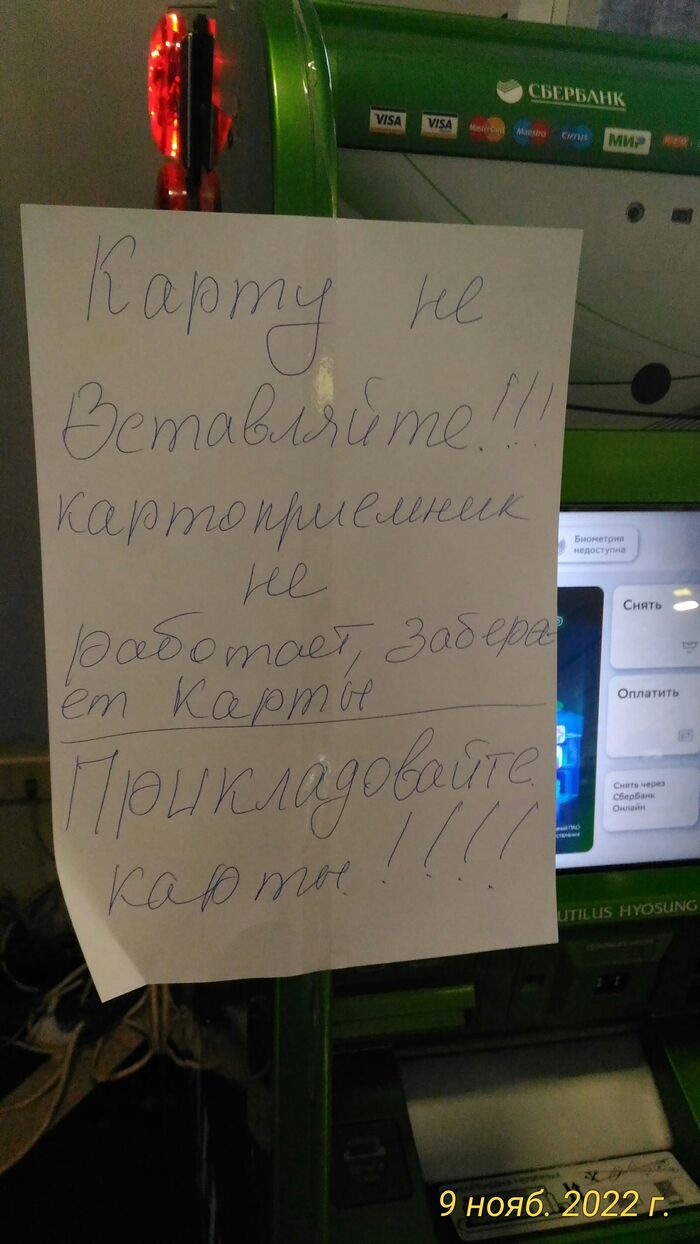 СБЕРБАНК
VISA VISA MasterCard Maestro Cirrus МИР
Карту не
Вставляйте!!!
картоприемник
не
работает, Забера-
ет Карты
Прикладовайте
карты!!!!
Биометрия
недоступна
Снять
Оплатить
Снять через
СберБанк
Онлайн
UTILUS HYOSUNG
9 нояб. 2022 г.